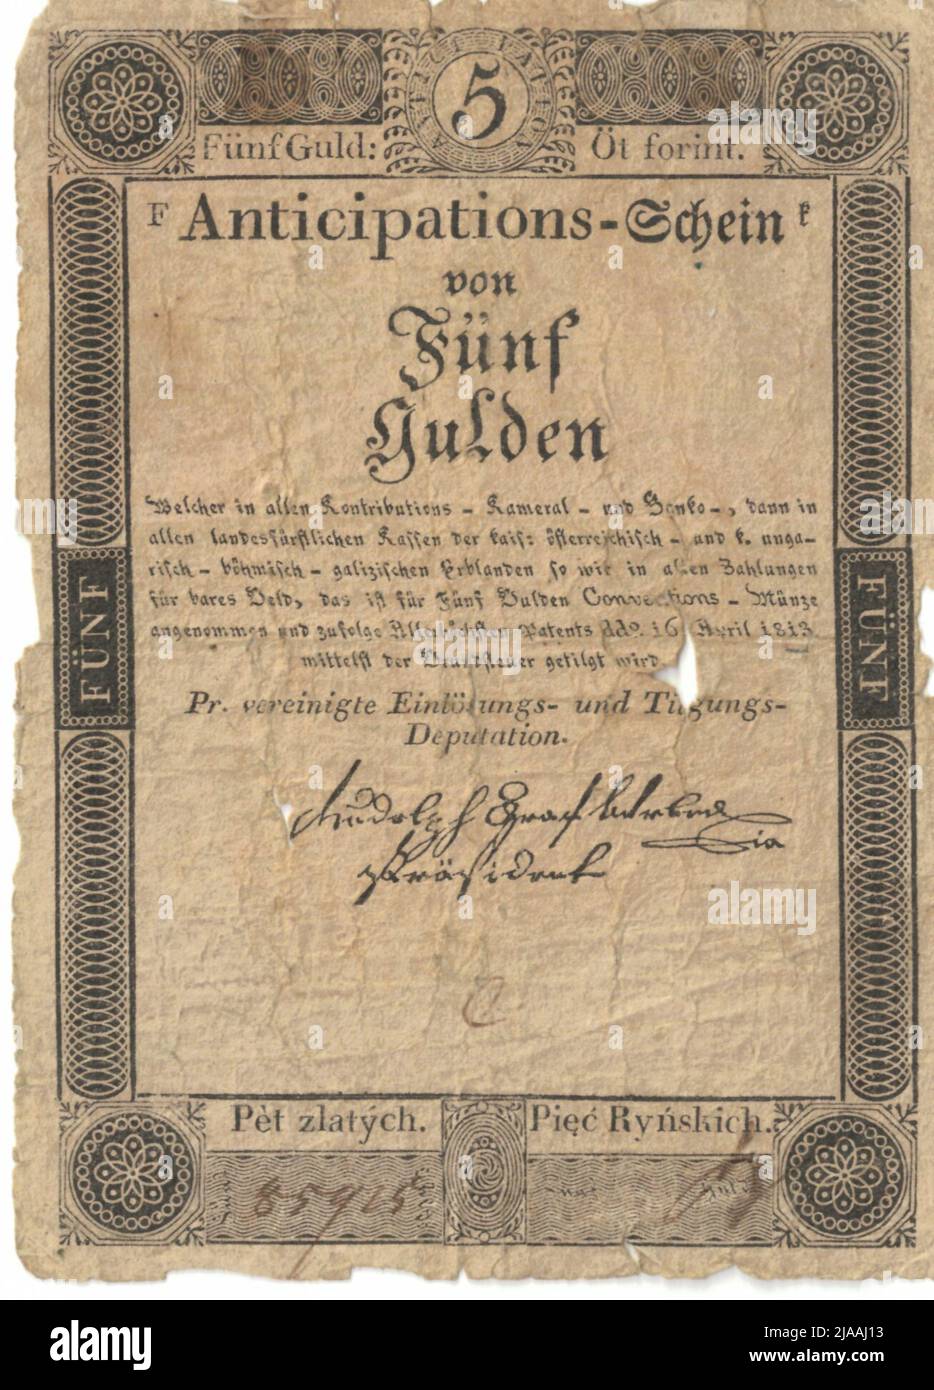 ANTICIPATION
5
Fünf Guld:
Öt forint.
F Anticipations-Schein F
von
Fünf
Gulden
Welcher in allen Kontributions - Kameral - und Banko-, dann in
allen landesfürstlichen Kassen der kais: österreichisch - und k. unga-
risch - böhmisch - galizischen Erblanden so wie in allen Zahlungen
für bares Geld, das ist für Fünf Gulden Conventions - Münze
angenommen und zufolge Allerhöchsten Patents ddo. 16 April 1813
mittelst der Grundsteuer getilgt wird.
Pr. vereinigte Einlösungs- und Tilgungs-
Deputation.
Rudolph Graf
Präsident
FÜNF
FÜNF
Pět zlatých.
Pięć Ryńskich.
alamy
a
Image ID: 2JAAJ13
www.alamy.com